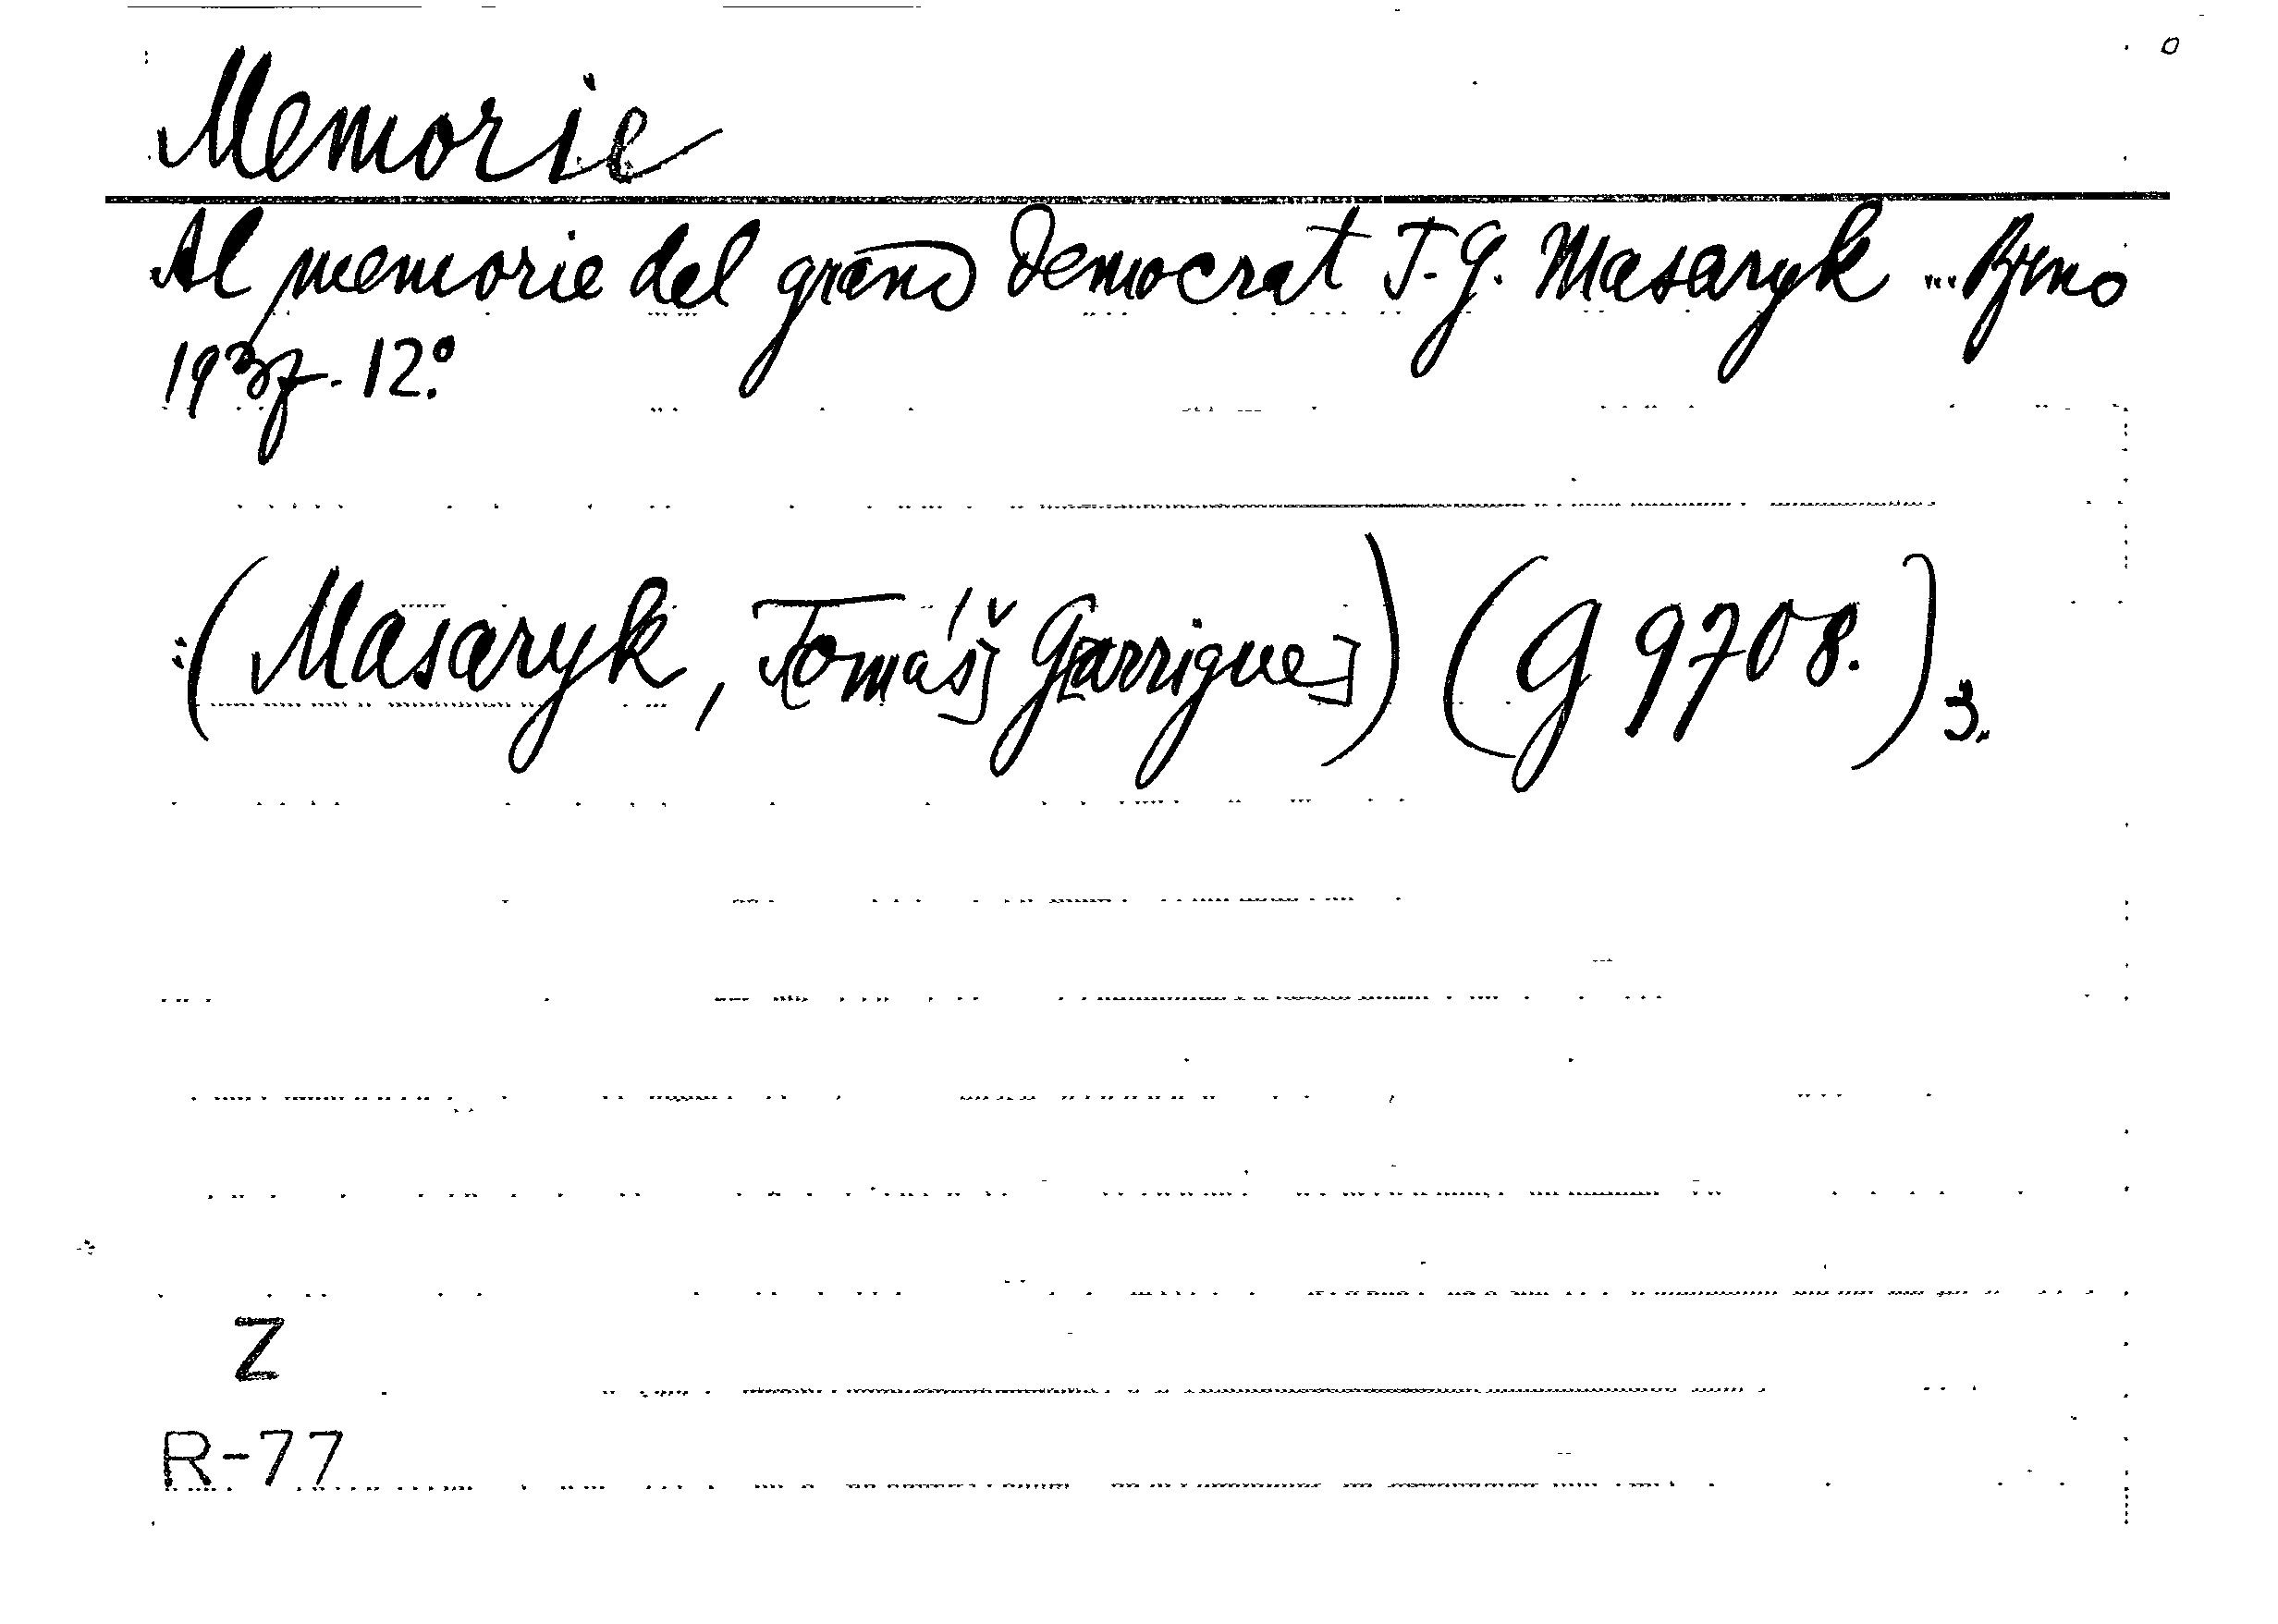 Memorie
Al memorie del grand democrat T. G. Masaryk ... Brno
1937. 12°.
(Masaryk, T[omáš] G[arrigue]) (G 9708.) 3.
Z
R-77